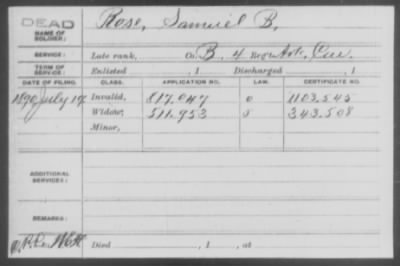 DEAD
NAME OF SOLDIER: Rose, Samuel B.
SERVICE: Late rank, Co. B, 4 Reg't
TERM OF SERVICE: Enlisted , 1 Discharged , 1
DATE OF FILING. CLASS. APPLICATION NO. LAW. CERTIFICATE NO.
1890 July 17 Invalid, 817.047 1103.545
Widow, 511.953 343.508
Minor,
ADDITIONAL SERVICES:
REMARKS:
Died , 1 , at